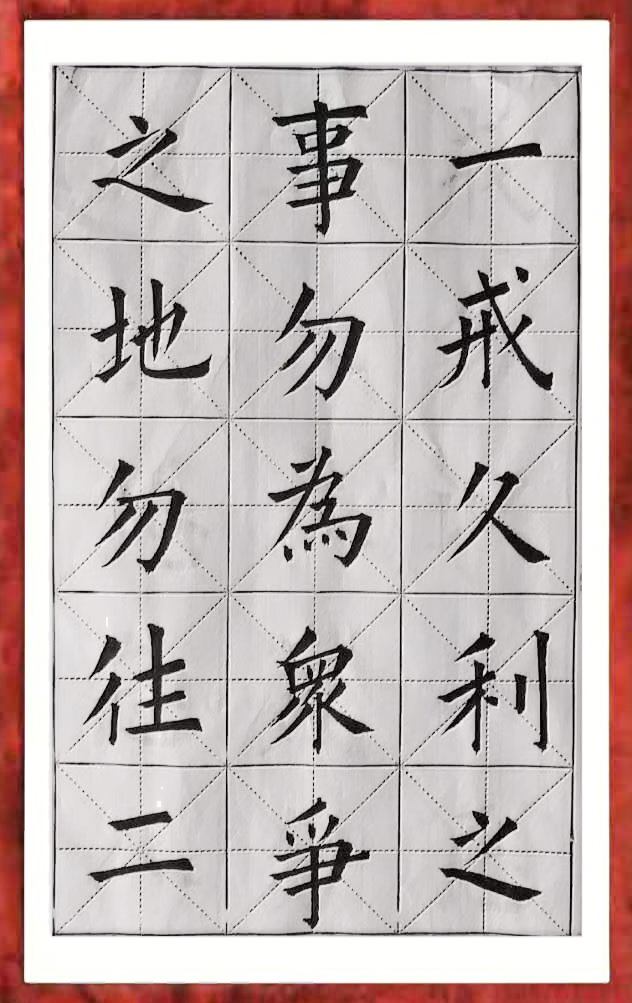 一戒久利之
事勿為衆爭
之地勿往二